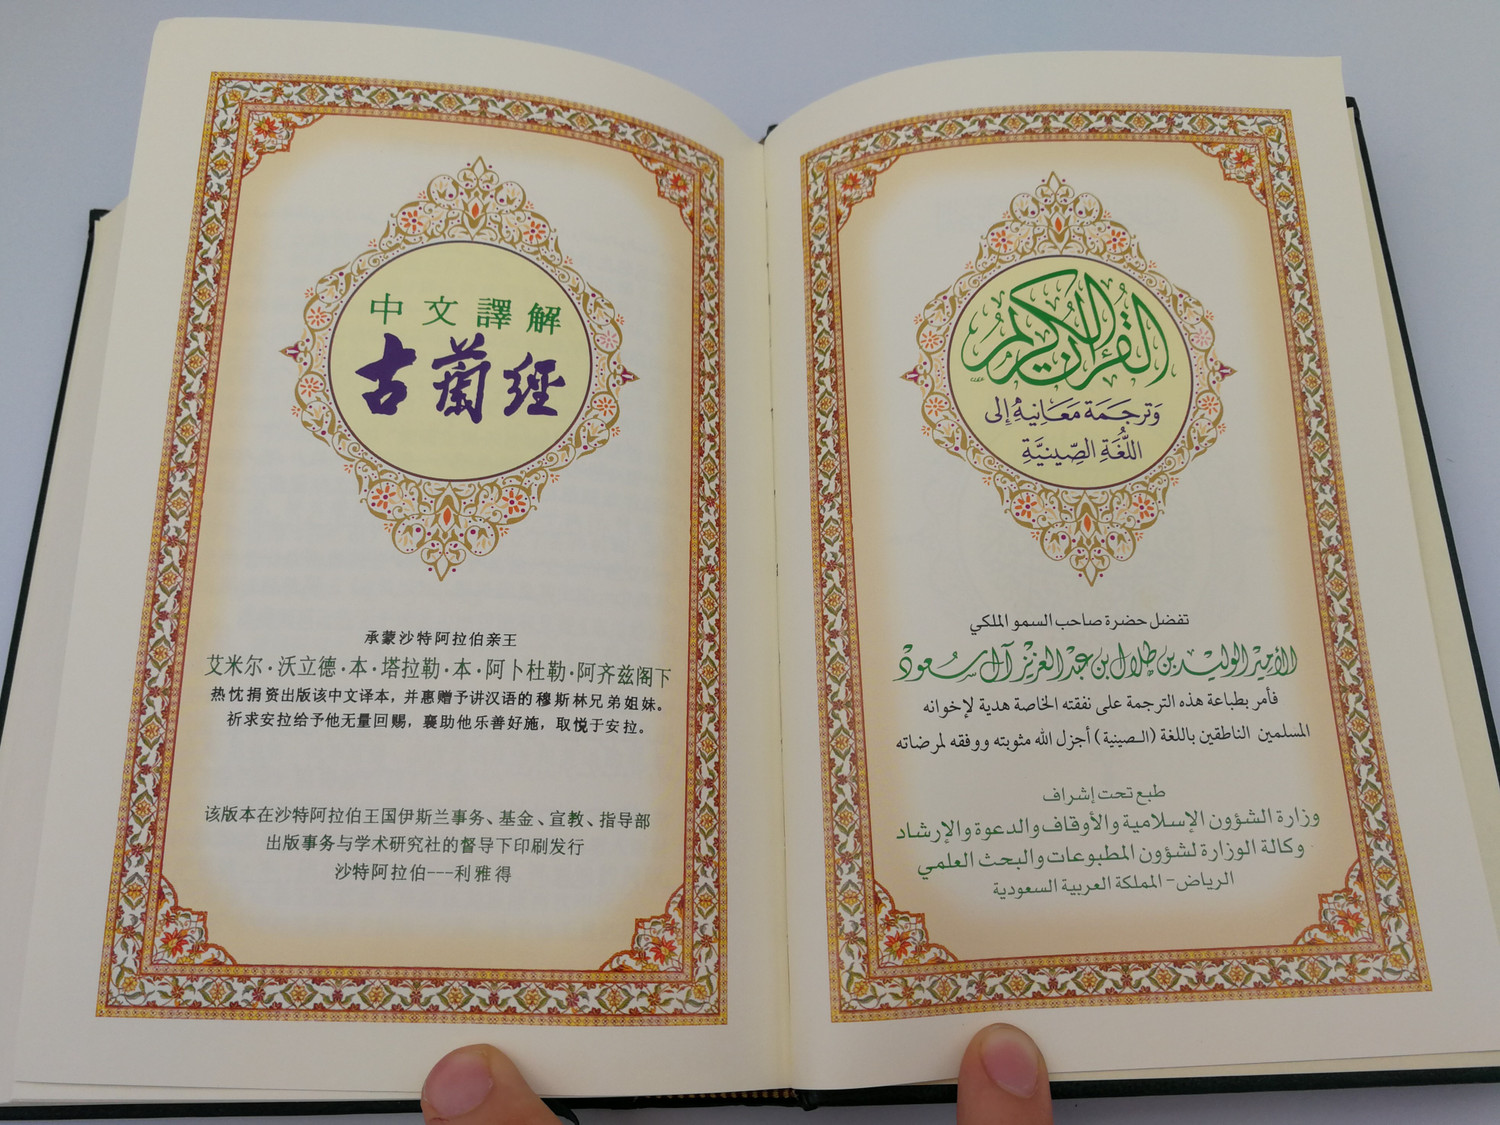 中文譯解
古蘭經
承蒙沙特阿拉伯亲王
艾米尔·沃立德·本·塔拉勒·本·阿卜杜勒·阿齐兹阁下
热忱捐资出版该中文译本，并惠赠予讲汉语的穆斯林兄弟姐妹。
祈求安拉给予他无量回赐，襄助他乐善好施，取悦于安拉。
该版本在沙特阿拉伯王国伊斯兰事务、基金、宣教、指导部
出版事务与学术研究社的督导下印刷发行
沙特阿拉伯---利雅得
القرآن الكريم
وَتَرجَمَة مَعَانِيهُ إلى
اللُّغَةِ الصِّينِيَّةِ
تفضل حضرة صاحب السمو الملكي
الأمير الوليد بن طلال بن عبد العزيز آل سعود
فأمر بطباعة هذه الترجمة على نفقته الخاصة هدية لإخوانه
المسلمين الناطقين باللغة (الـصينية) أجزل الله مثوبته ووفقه لمرضاته
طبع تحت إشراف
وزارة الشؤون الإسلامية والأوقاف والدعوة والإرشاد
وكالة الوزارة لشؤون المطبوعات والبحث العلمي
الرياض - المملكة العربية السعودية